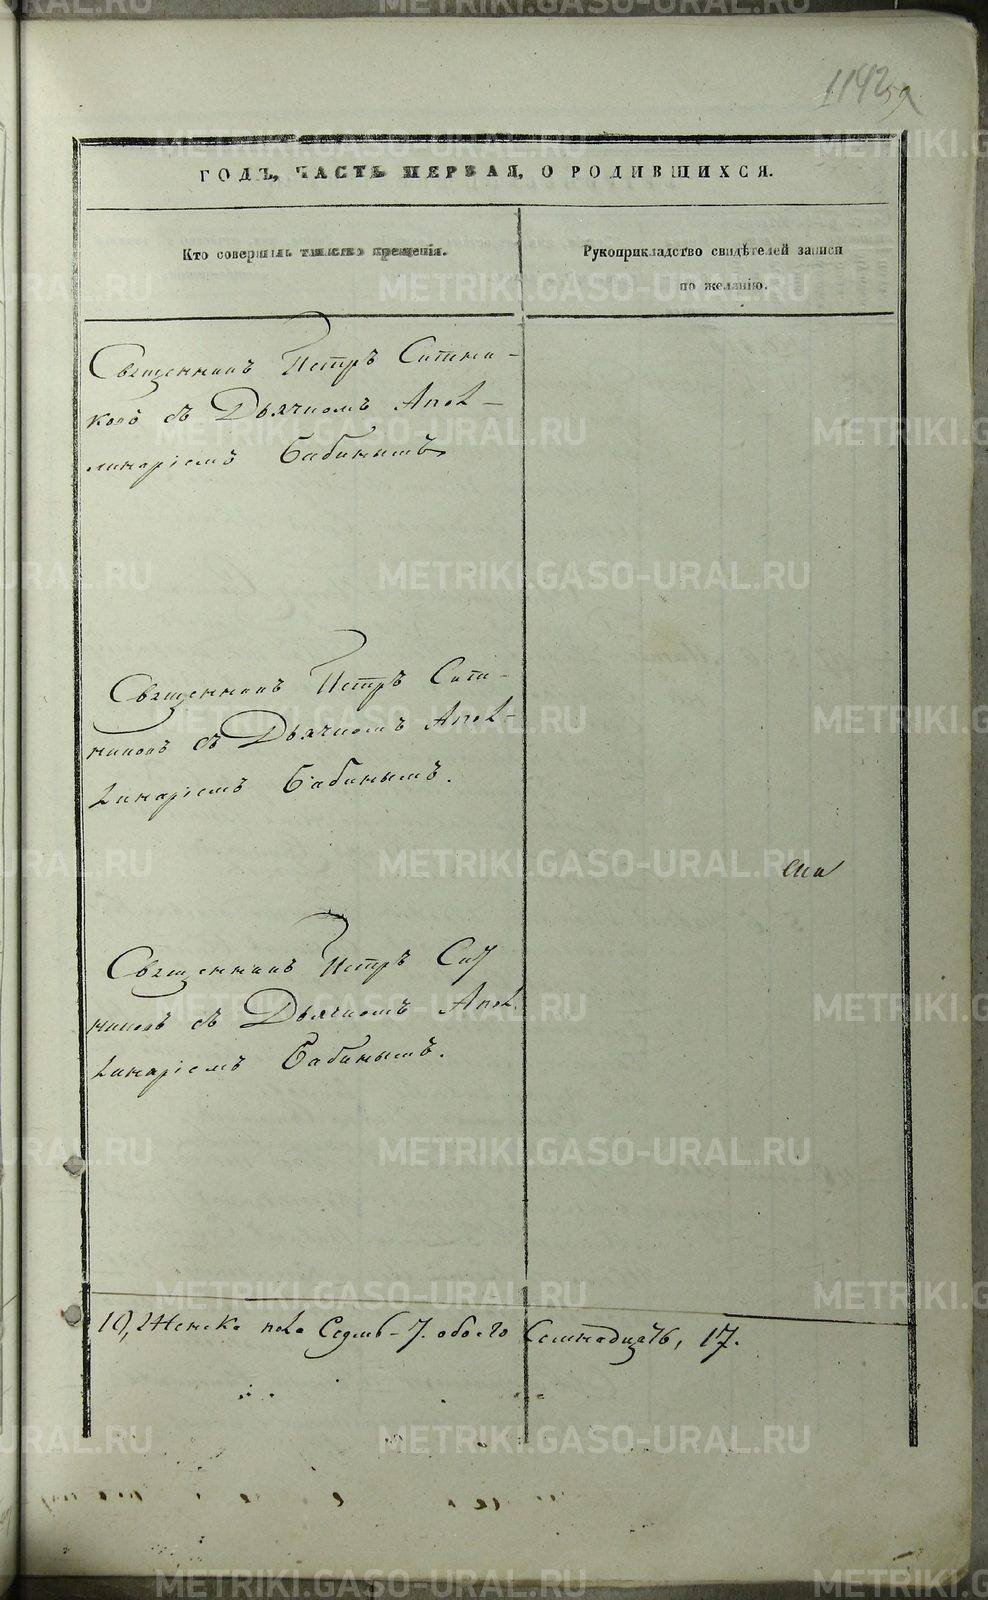 1142
ГОДЪ, ЧАСТЬ ПЕРВАЯ, О РОДИВШИХСЯ.
Кто совершилъ таинство крещенія.
Рукоприкладство свидѣтелей записи
по желанію.
Священникъ Петръ Ситни-
ковъ съ Дьячкомъ Апол-
линаріемъ Бабинымъ
Священникъ Петръ Сит-
никовъ съ Дьячкомъ Апол-
линаріемъ Бабинымъ.
Священникъ Петръ Сит
никовъ съ Дьячкомъ Апол
линаріемъ Бабинымъ.
10, Женска пола Седмь - 7. обоего Семнадцать, 17.
METRIKI.GASO-URAL.RU